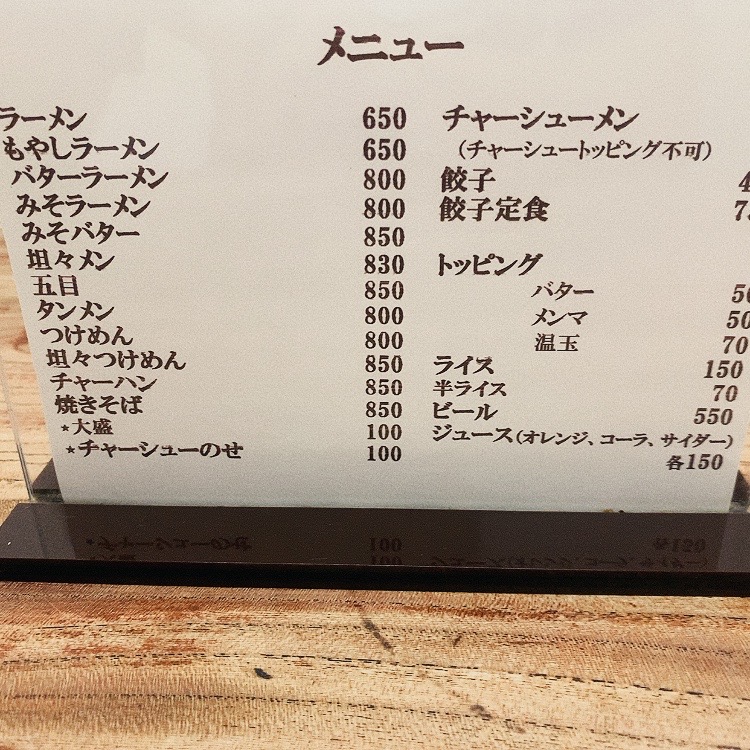 メニュー
ラーメン 650
もやしラーメン 650
バターラーメン 800
みそラーメン 800
みそバター 850
坦々メン 830
五目 850
タンメン 800
つけめん 800
坦々つけめん 850
チャーハン 850
焼きそば 850
★大盛 100
★チャーシューのせ 100
チャーシューメン
(チャーシュートッピング不可)
餃子
餃子定食
トッピング
バター
メンマ
温玉 70
ライス 150
半ライス 70
ビール 550
ジュース(オレンジ、コーラ、サイダー)
各150